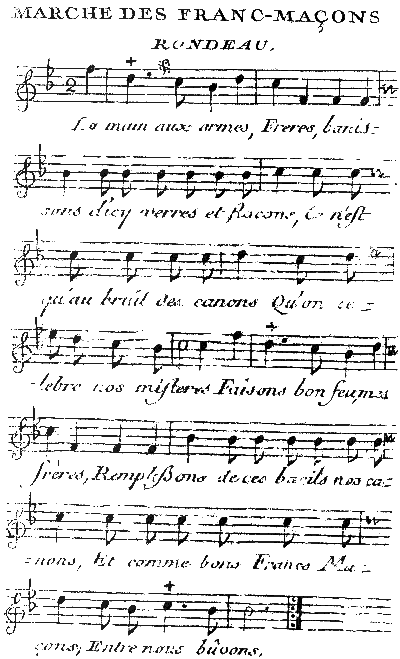 MARCHE DES FRANC-MAÇONS
RONDEAU.
La main aux armes, Freres, banis-
sons d'icy verres et flacons, Ce n'est
qu'au bruit des canons Qu'on ce-
-lebre nos misteres Faisons bon feu, mes
frères, Remplissons de ces barils nos ca-
-nons, Et comme bons Francs Ma-
çons, Entre nous bûvons.